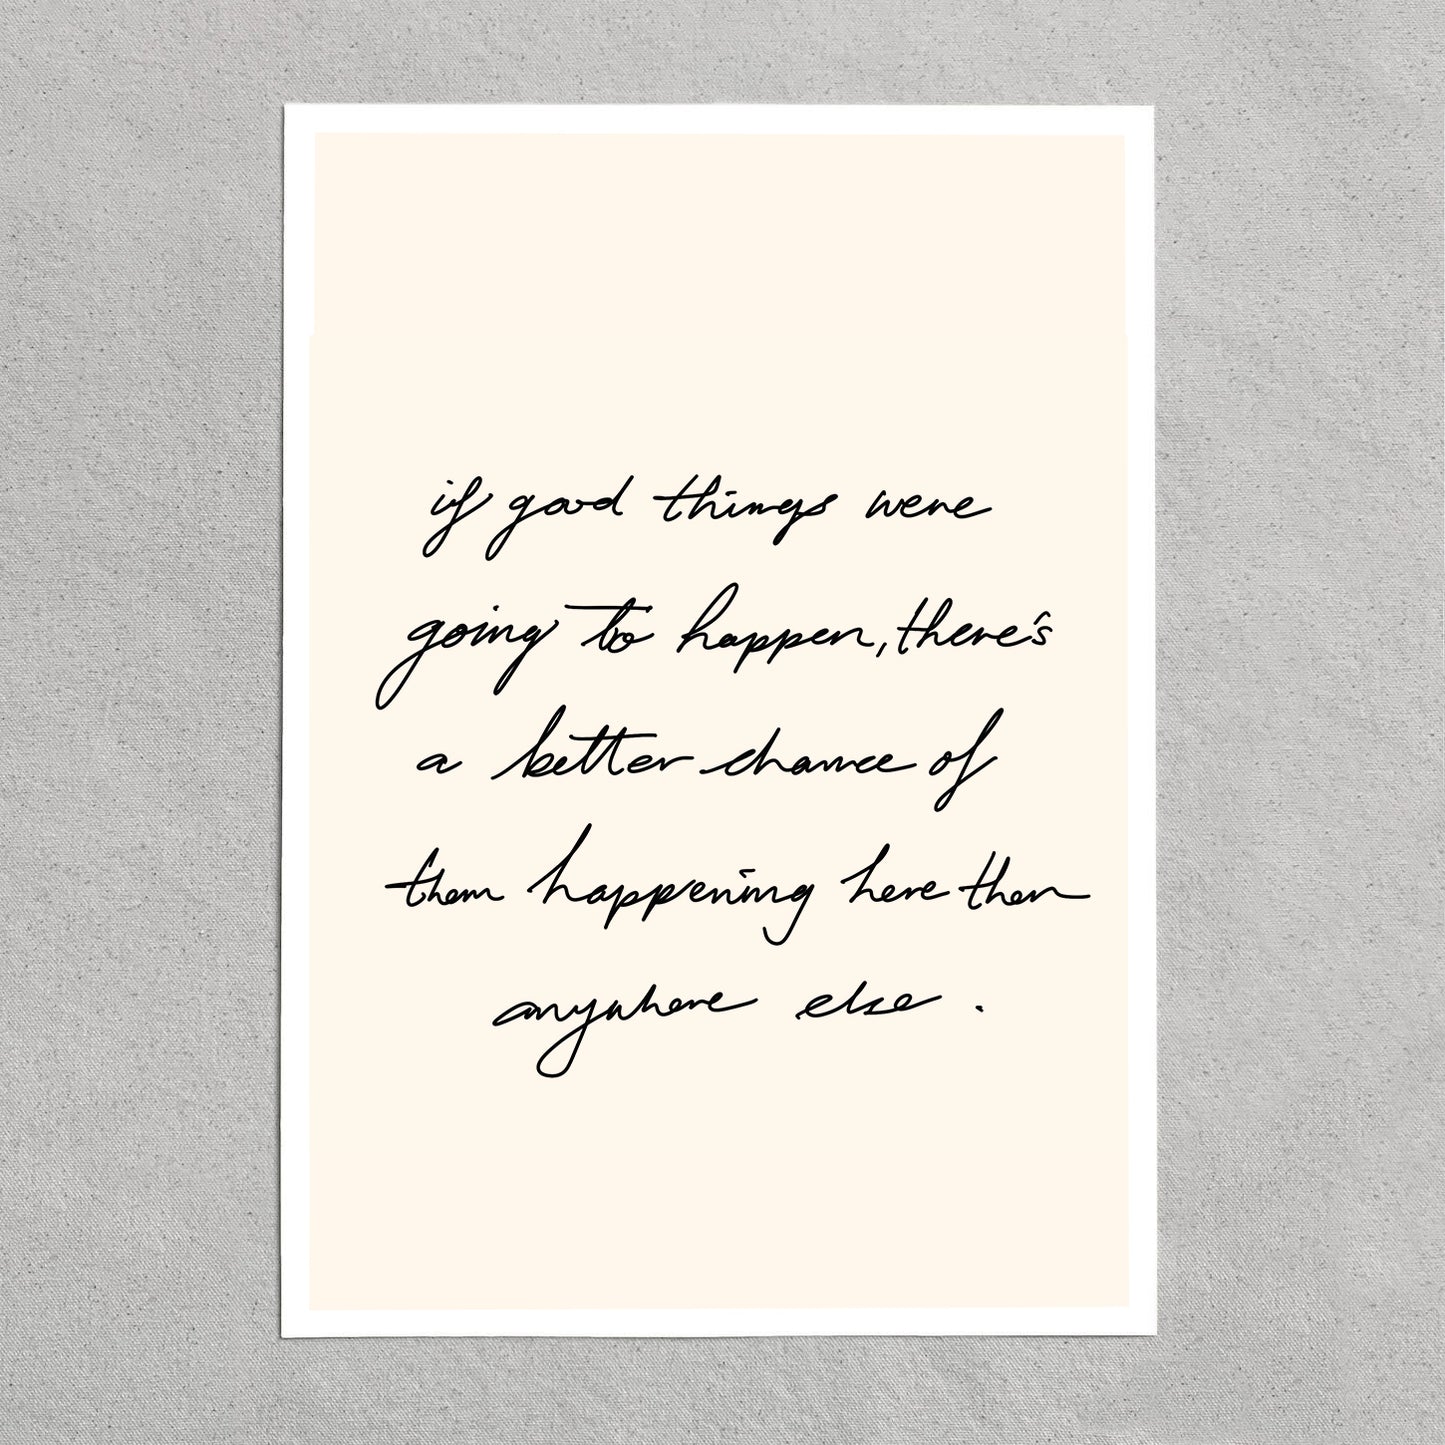 if good things were
going to happen, there's
a better chance of
them happening here then
anywhere else.